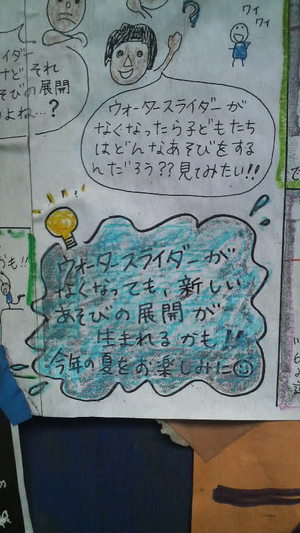 ワイ
ワイ
スライダー
けど それ
そびの展開
よね…?
ウォータースライダーが
なくなったら子どもたち
はどんなあそびをする
んだろう??見てみたい!!
かも!!
ウォータースライダーが
なくなっても、新しい
あそびの展開が
生まれるかも!!
今年の夏をお楽しみに